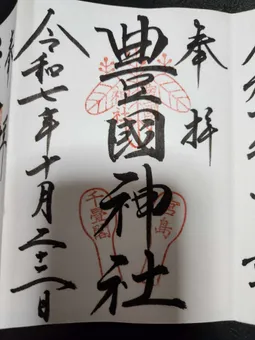 奉拝
豊國神社
宮島
千疊閣
令和七年十月二十二日